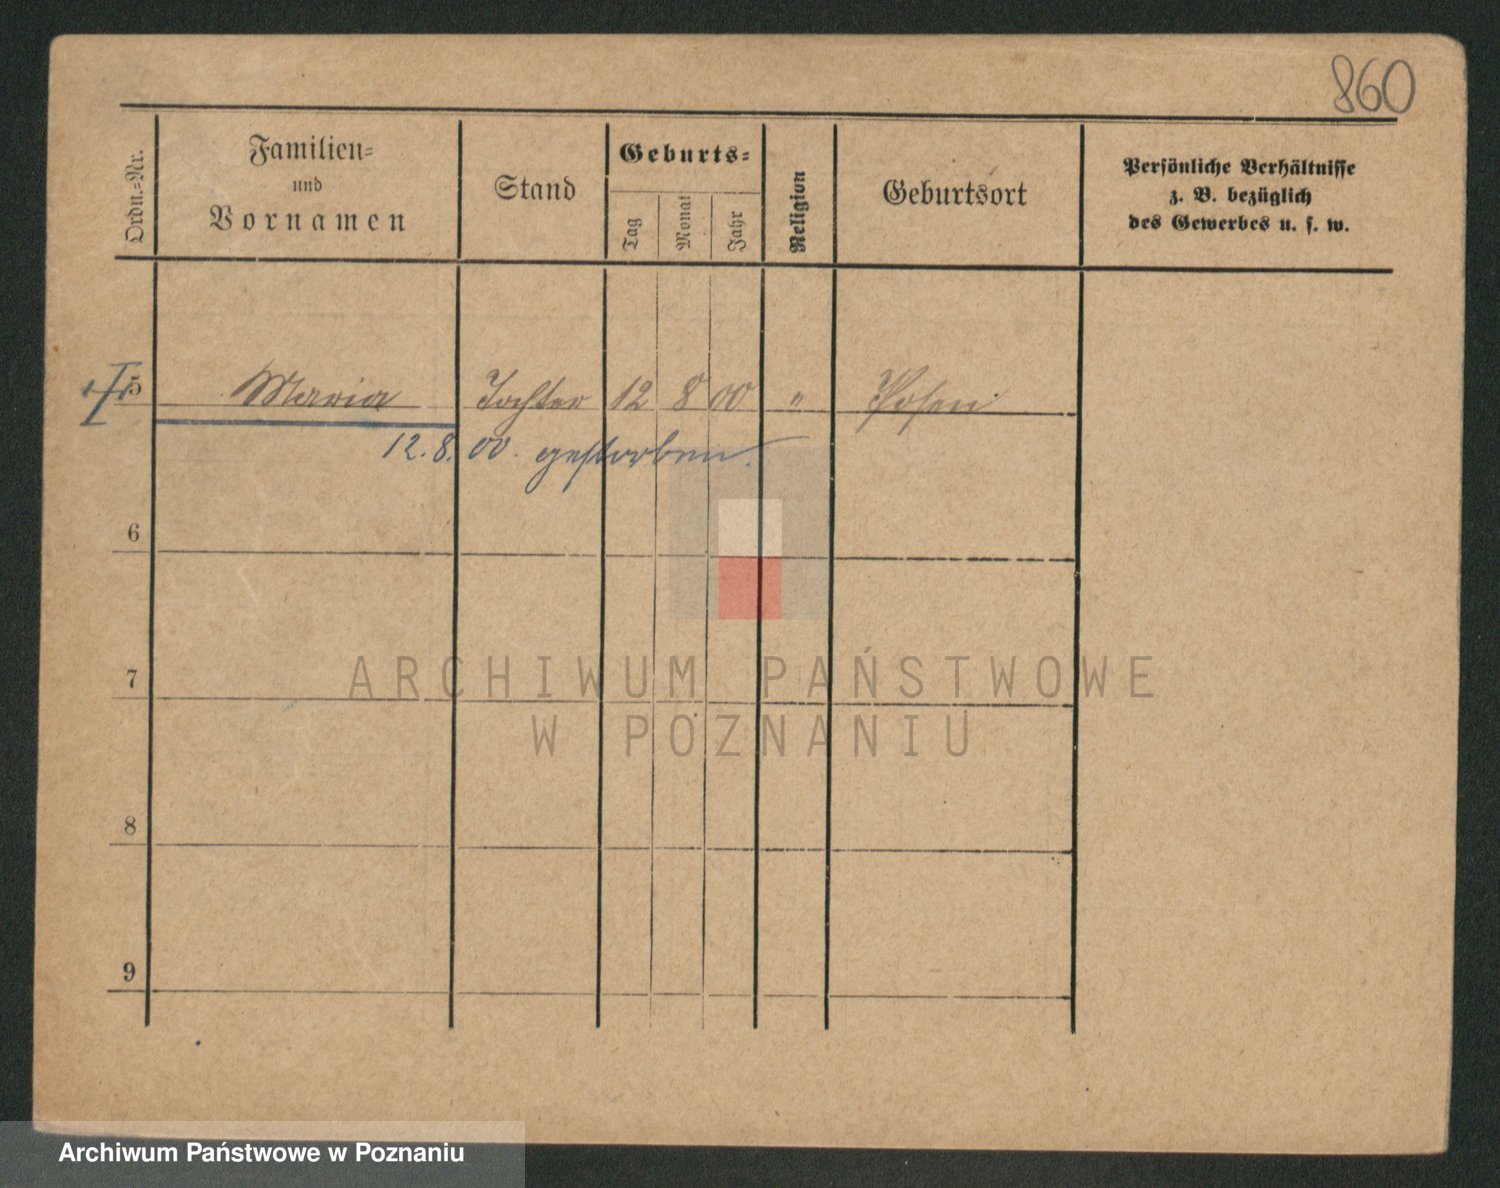 860
Ordn.-Nr.
Familien-
und
Vornamen
Stand
Geburts-
Tag
Monat
Jahr
Religion
Geburtsort
Persönliche Verhältnisse
z. B. bezüglich
des Gewerbes u. s. w.
5 Maria Tochter 12 8 00 " Posen
12.8.00. gestorben.
6
7
8
9
ARCHIWUM PAŃSTWOWE
W POZNANIU
Archiwum Państwowe w Poznaniu